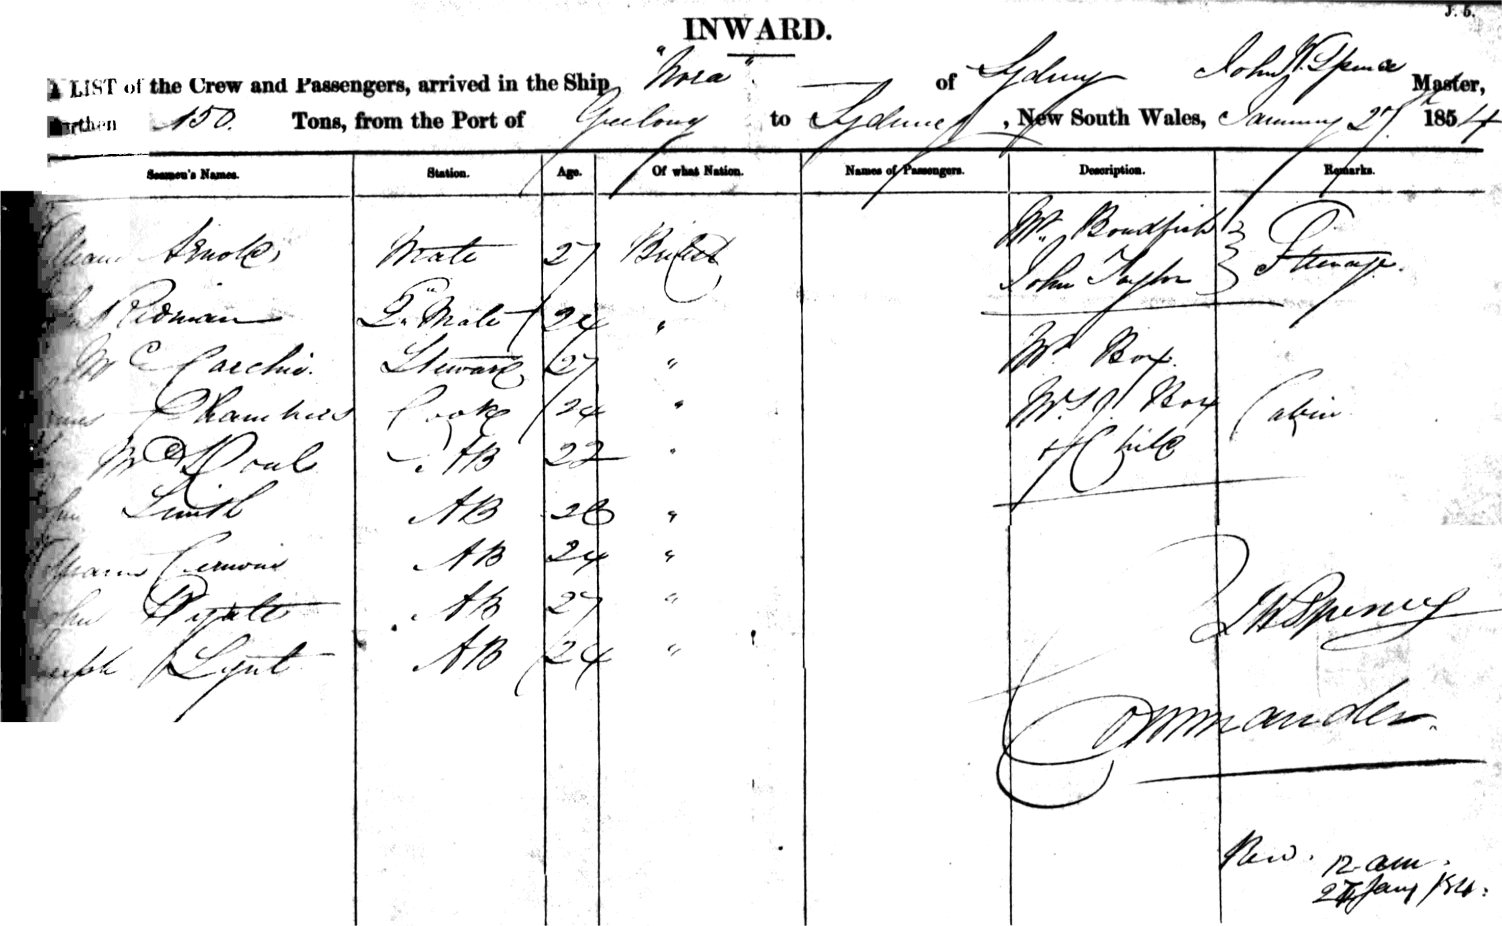 J. 5.
INWARD.
A LIST of the Crew and Passengers, arrived in the Ship "Nora" of Sydney John W. Spence Master,
Burthen 150. Tons, from the Port of Geelong to Sydney, New South Wales, January 27th 1854
Seamen's Names. Station. Age. Of what Nation. Names of Passengers. Description. Remarks.
Arnold, Mate 27 British Mr. Boudfish
John Taylor Steerage.
Redman 2nd Mate 24 "
McCarchie. Steward 27 " Mr. Box.
Chambers Cook 24 " Mrs Box Cabin
McDoul AB 22 " & Child
Smith AB 26 "
AB 24 "
John AB 27 "
Joseph Lynt AB 24 "
JW Spence
Commander.
12 am.
27 Jany 1854.